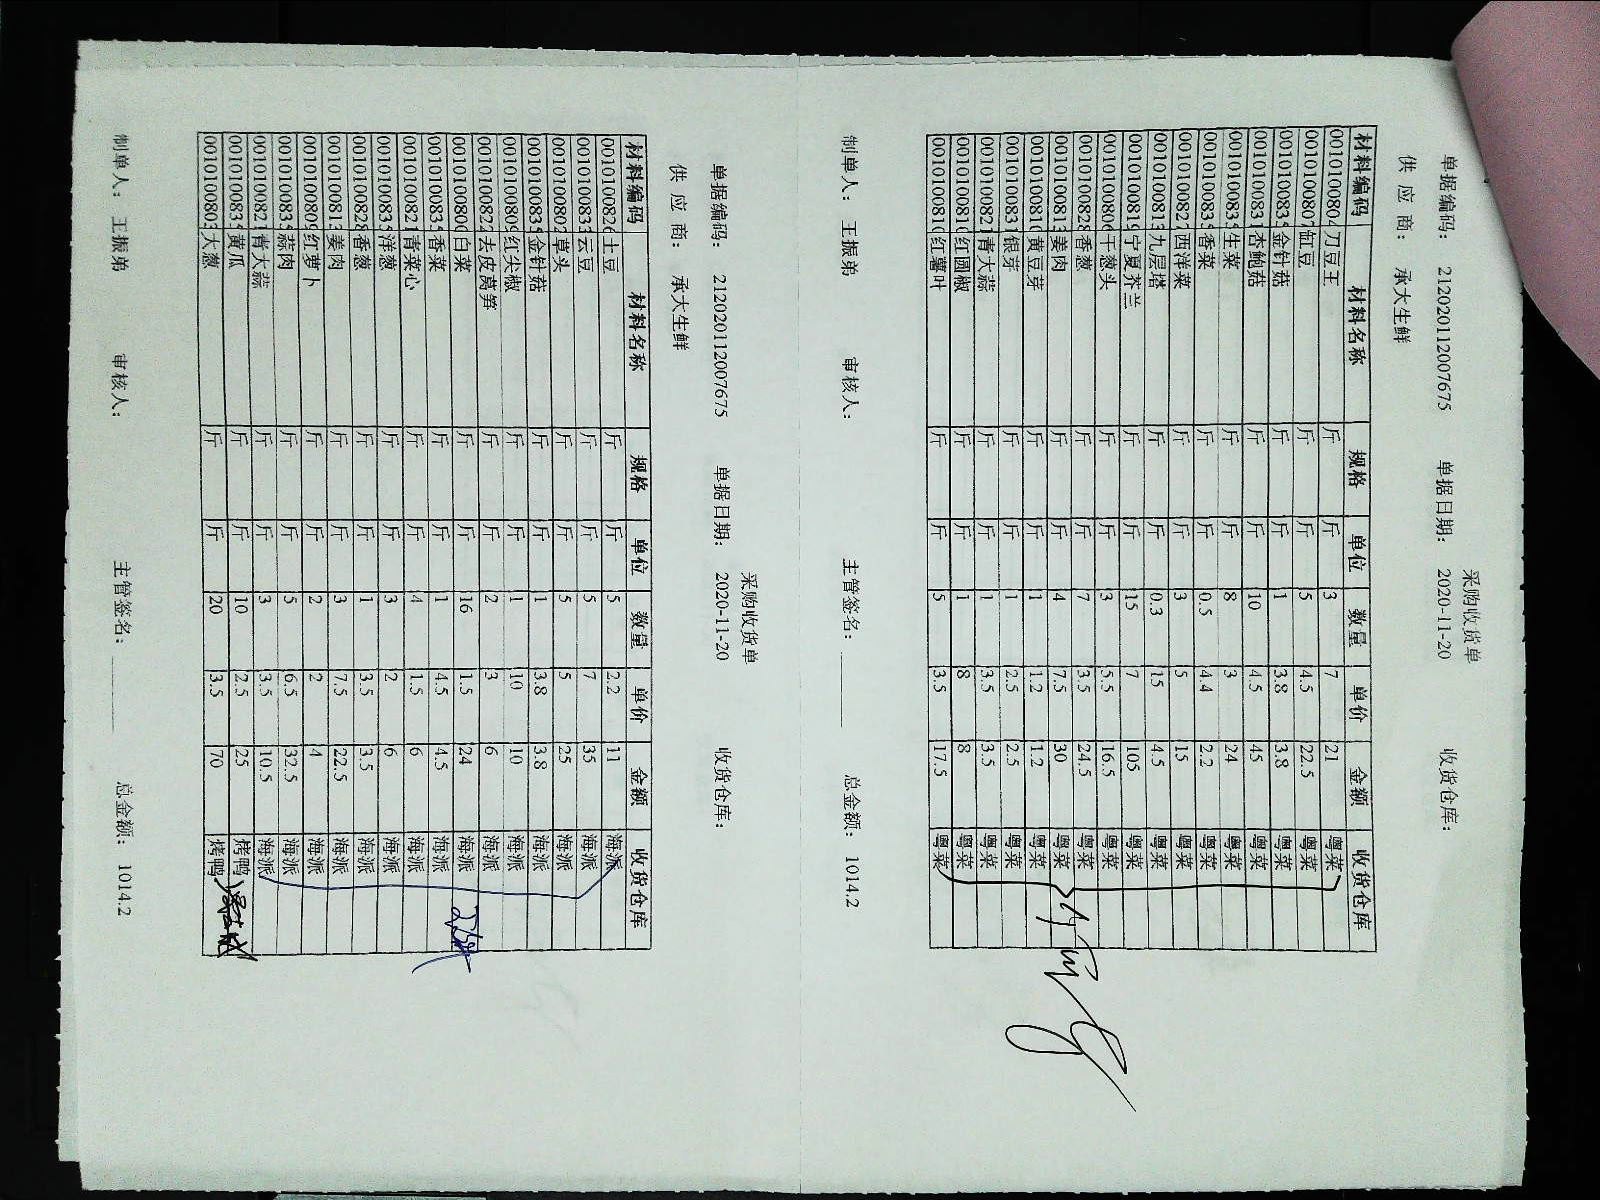 采购收货单
单据编码: 212020112007675 单据日期: 2020-11-20 收货仓库:
供 应 商: 承大生鲜
材料编码 材料名称 规格 单位 数量 单价 金额 收货仓库
0010100804 刀豆王 斤 斤 3 7 21 粤菜
0010100807 缸豆 斤 斤 5 4.5 22.5 粤菜
001010083 金针菇 斤 斤 1 3.8 3.8 粤菜
001010083 杏鲍菇 斤 斤 10 4.5 45 粤菜
001010083 生菜 斤 斤 8 3 24 粤菜
001010083 香菜 斤 斤 0.5 4.4 2.2 粤菜
001010082 西洋菜 斤 斤 3 5 15 粤菜
001010081 九层塔 斤 斤 0.3 15 4.5 粤菜
001010081 宁夏芥兰 斤 斤 15 7 105 粤菜
001010080 干葱头 斤 斤 3 5.5 16.5 粤菜
001010082 香葱 斤 斤 7 3.5 24.5 粤菜
001010081 姜肉 斤 斤 4 7.5 30 粤菜
001010081 黄豆芽 斤 斤 1 1.2 1.2 粤菜
001010083 银芽 斤 斤 1 2.5 2.5 粤菜
001010082 青大蒜 斤 斤 1 3.5 3.5 粤菜
001010081 红圆椒 斤 斤 1 8 8 粤菜
001010081 红薯叶 斤 斤 5 3.5 17.5 粤菜
制单人: 王振弟 审核人: 主管签名: 总金额: 1014.2
采购收货单
单据编码: 212020112007675 单据日期: 2020-11-20 收货仓库:
供 应 商: 承大生鲜
材料编码 材料名称 规格 单位 数量 单价 金额 收货仓库
001010082 土豆 斤 斤 5 2.2 11 海派
001010083 云豆 斤 斤 5 7 35 海派
001010080 草头 斤 斤 5 5 25 海派
001010083 金针菇 斤 斤 1 3.8 3.8 海派
001010080 红尖椒 斤 斤 1 10 10 海派
001010082 去皮莴笋 斤 斤 2 3 6 海派
001010080 白菜 斤 斤 16 1.5 24 海派
001010083 香菜 斤 斤 1 4.5 4.5 海派
001010082 青菜心 斤 斤 4 1.5 6 海派
001010083 洋葱 斤 斤 3 2 6 海派
001010082 香葱 斤 斤 1 3.5 3.5 海派
001010081 姜肉 斤 斤 3 7.5 22.5 海派
001010080 红萝卜 斤 斤 2 2 4 海派
001010083 蒜肉 斤 斤 5 6.5 32.5 海派
001010082 青大蒜 斤 斤 3 3.5 10.5 海派
001010083 黄瓜 斤 斤 10 2.5 25 烤鸭
001010080 大葱 斤 斤 20 3.5 70 烤鸭
制单人: 王振弟 审核人: 主管签名: 总金额: 1014.2